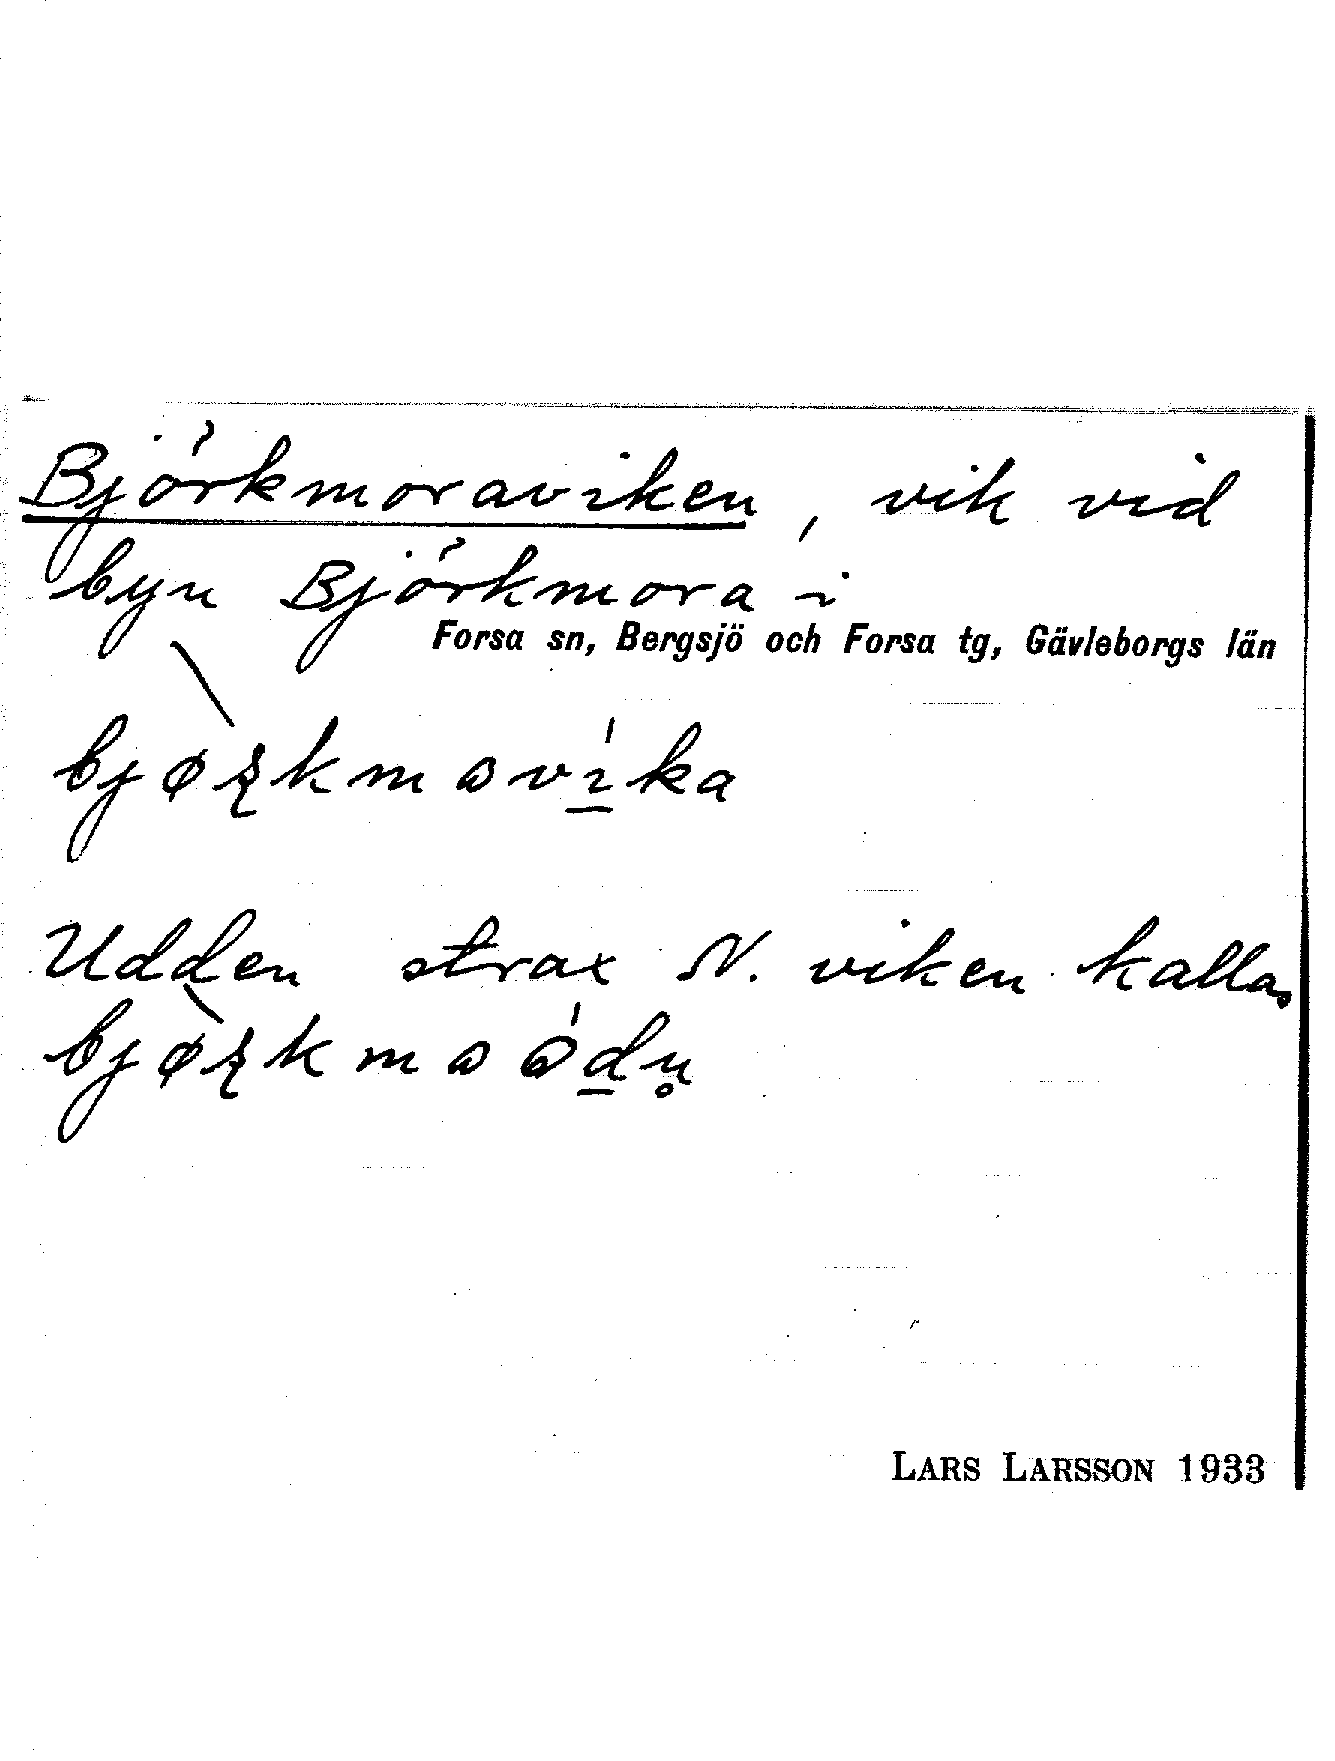 Björkmoraviken, vik vid
byn Björkmora i
Forsa sn, Bergsjö och Forsa tg, Gävleborgs län
Udden strax N. viken kallas
LARS LARSSON 1933